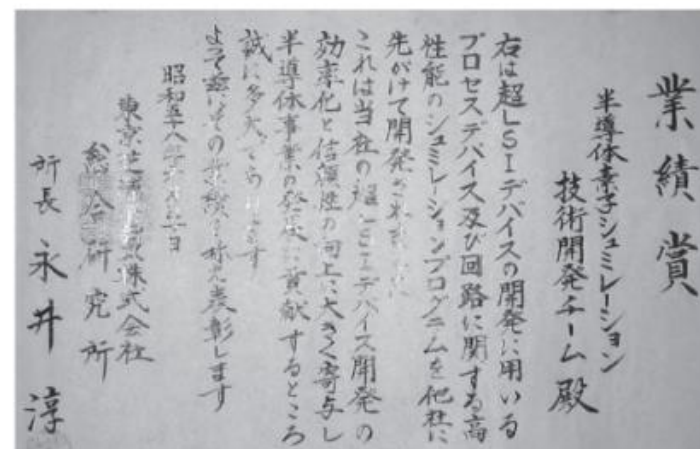 業績賞
半導体素子シュミレーション
技術開発チーム殿
右は超LSIデバイスの開発に用いる
プロセスデバイス及び回路に関する高
性能のシュミレーションプログラムを他社に
先がけて開発されました
これは当社の超LSIデバイス開発の
効率化と信頼性の向上に大きく寄与し
半導体事業の発展に貢献するところ
誠に多大であります
よって茲にその業績を称え表彰します
昭和五十八年 日
東京芝浦電気株式会社
総合研究所
所長 永井淳